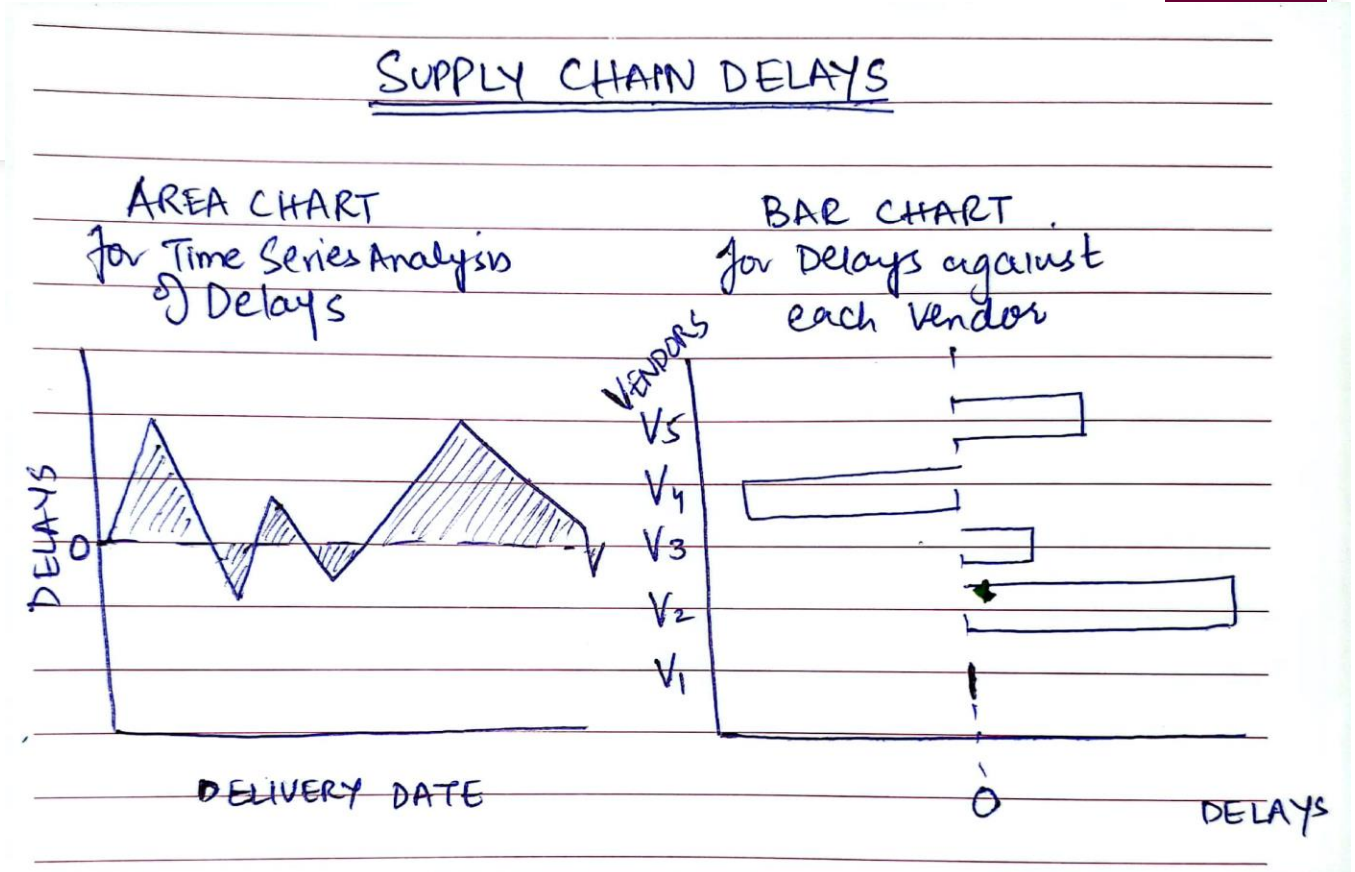 SUPPLY CHAIN DELAYS
AREA CHART
for Time Series Analysis
of Delays
DELAYS
0
DELIVERY DATE
BAR CHART
for Delays against
each vendor
VENDORS
V5
V4
V3
V2
V1
0
DELAYS